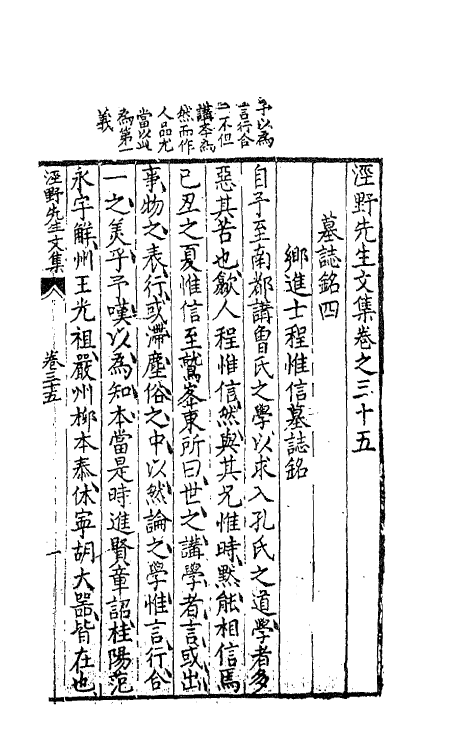 予以為
言行合
一不但
講本為
然而作
人品尤
當以此
為第一
義
涇野先生文集卷之三十五
墓誌銘四
鄉進士程惟信墓誌銘
自予至南都講魯氏之學以求入孔氏之道學者多
惡其苦也歙人程惟信然與其兄惟時黙能相信焉
已丑之夏惟信至鷲峯東所曰世之講學者言或出
事物之表行或滯塵俗之中以然論之學惟言行合
一之美乎予嘆以為知本當是時進賢章詔桂陽范
永宇解州王光祖嚴州柳本泰休寧胡大器皆在也
涇野先生文集
卷三十五
一